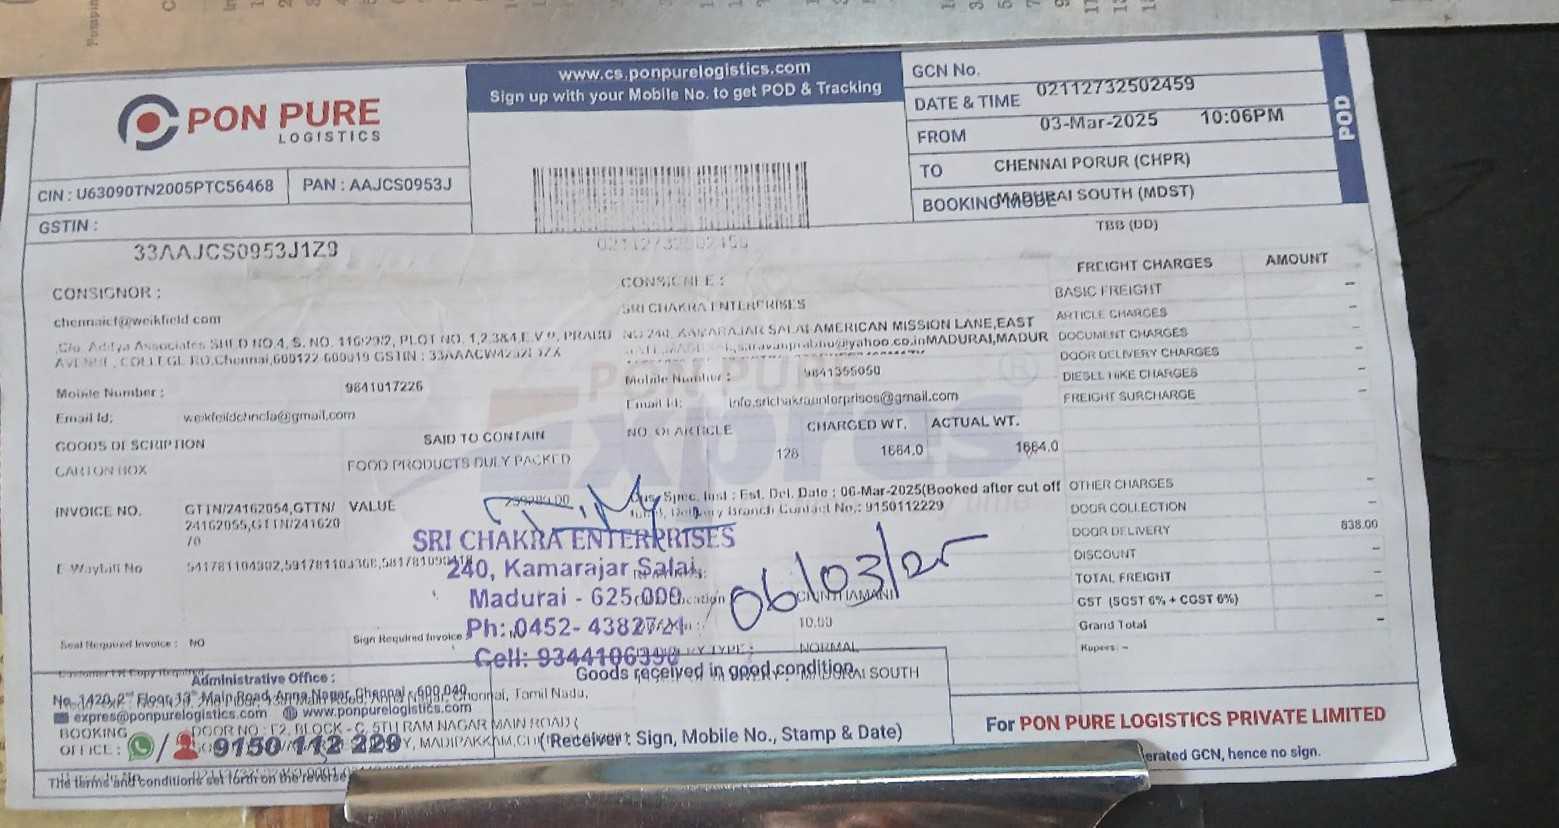 www.cs.ponpurelogistics.com
Sign up with your Mobile No. to get POD & Tracking
PON PURE
LOGISTICS
CIN : U63090TN2005PTC56468
PAN : AAJCS0953J
GSTIN :
33AAJCS0953J1Z9
GCN No.
02112732502459
DATE & TIME
03-Mar-2025 10:06PM
FROM
CHENNAI PORUR (CHPR)
TO
MADURAI SOUTH (MDST)
BOOKING MODE
TBB (DD)
POD
CONSIGNOR :
chennaicf@weikfield.com
C/o. Aditya Associates SHED NO.4, S. NO. PLOT NO. 1,2,3&4,E.V.P. PRABU
AVENUE, COLLEGE RD,Chennai,600122 GSTIN :
Mobile Number : 9841017226
Email Id: weikfeildchncfa@gmail.com
CONSIGNEE :
SRI CHAKRA ENTERPRISES
NO 240, KAMARAJAR SALAI AMERICAN MISSION LANE,EAST
saravanprabhu@yahoo.co.inMADURAI,MADUR
Mobile Number : 9841355050
Email Id: info.srichakraenterprises@gmail.com
PON PURE
Expres
FREIGHT CHARGES AMOUNT
BASIC FREIGHT –
ARTICLE CHARGES –
DOCUMENT CHARGES –
DOOR DELIVERY CHARGES –
DIESEL HIKE CHARGES –
FREIGHT SURCHARGE –
OTHER CHARGES –
DOOR COLLECTION –
DOOR DELIVERY 838.00
DISCOUNT –
TOTAL FREIGHT –
GST (SGST 6% + CGST 6%) –
Grand Total –
Rupees: –
GOODS DESCRIPTION
SAID TO CONTAIN
NO. OF ARTICLE
CHARGED WT.
ACTUAL WT.
CARTON BOX
FOOD PRODUCTS DULY PACKED
128
1664.0
1664.0
INVOICE NO.
GTTN/24162054,GTTN/
24162055,GTTN/241620
70
VALUE
Cus. Spec. Inst : Est. Del. Date : 06-Mar-2025(Booked after cut off
Delivery Branch Contact No.: 9150112229
E-Waybill No
SRI CHAKRA ENTERPRISES
240, Kamarajar Salai,
Madurai - 625 009
Ph: 0452- 4382721
Cell: 9344106390
06/03/25
CHINTHAMANI
10.00
NORMAL
MADURAI SOUTH
Seal Required Invoice : NO
Sign Required Invoice
Customer FR Copy Required
Administrative Office :
No. 1420, 2nd Floor, 13th Main Road, Anna Nagar, Chennai - 600 040
Chennai, Tamil Nadu,
expres@ponpurelogistics.com www.ponpurelogistics.com
BOOKING
OFFICE :
DOOR NO : F2, BLOCK - C, 5TH RAM NAGAR MAIN ROAD (
MADIPAKKAM,
9150 112 229
The terms and conditions set forth on the reverse
Goods received in good condition
(Receiver : Sign, Mobile No., Stamp & Date)
For PON PURE LOGISTICS PRIVATE LIMITED
erated GCN, hence no sign.